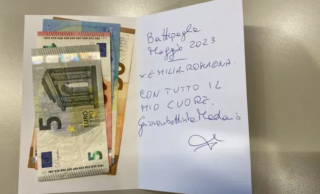 Battipaglia
Maggio 2023
x EMILIA ROMAGNA.
CON TUTTO IL
MIO CUORE.
Giovanbattista
5
5
EURO